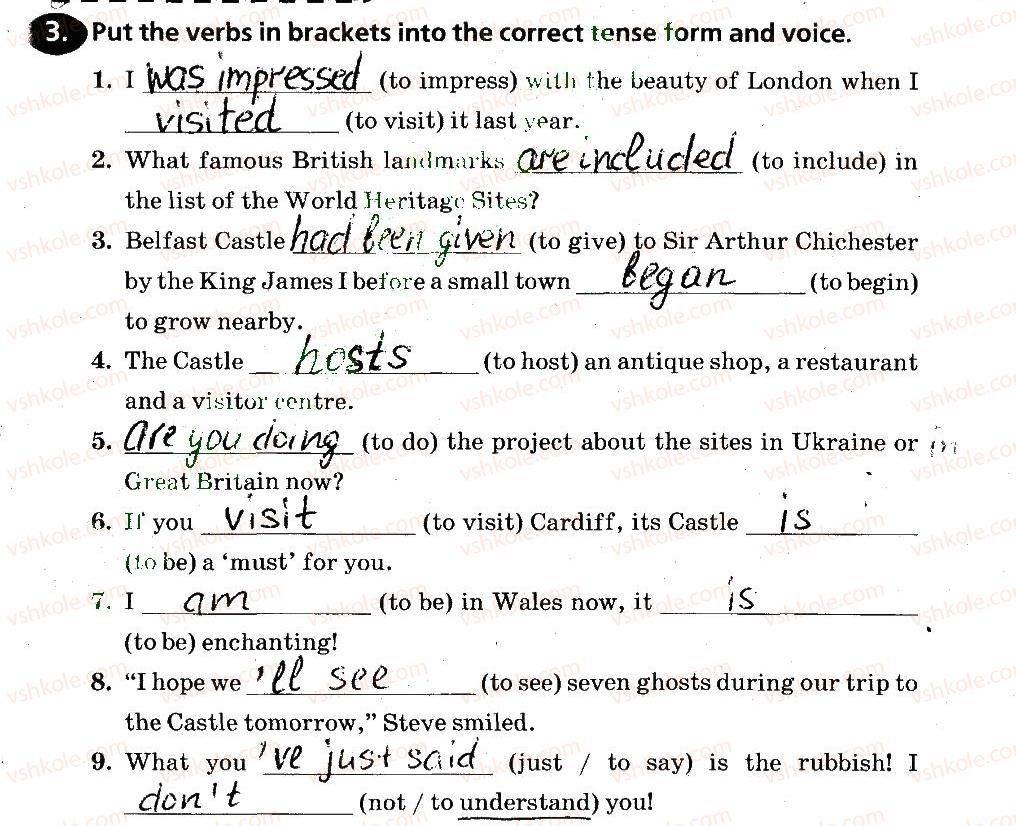 3. Put the verbs in brackets into the correct tense form and voice.
1. I was impressed (to impress) with the beauty of London when I
visited (to visit) it last year.
2. What famous British landmarks are included (to include) in
the list of the World Heritage Sites?
3. Belfast Castle had been given (to give) to Sir Arthur Chichester
by the King James I before a small town began (to begin)
to grow nearby.
4. The Castle hosts (to host) an antique shop, a restaurant
and a visitor centre.
5. Are you doing (to do) the project about the sites in Ukraine or in
Great Britain now?
6. If you visit (to visit) Cardiff, its Castle is
(to be) a ‘must’ for you.
7. I am (to be) in Wales now, it is
(to be) enchanting!
8. “I hope we 'll see (to see) seven ghosts during our trip to
the Castle tomorrow,” Steve smiled.
9. What you 've just said (just / to say) is the rubbish! I
don't (not / to understand) you!